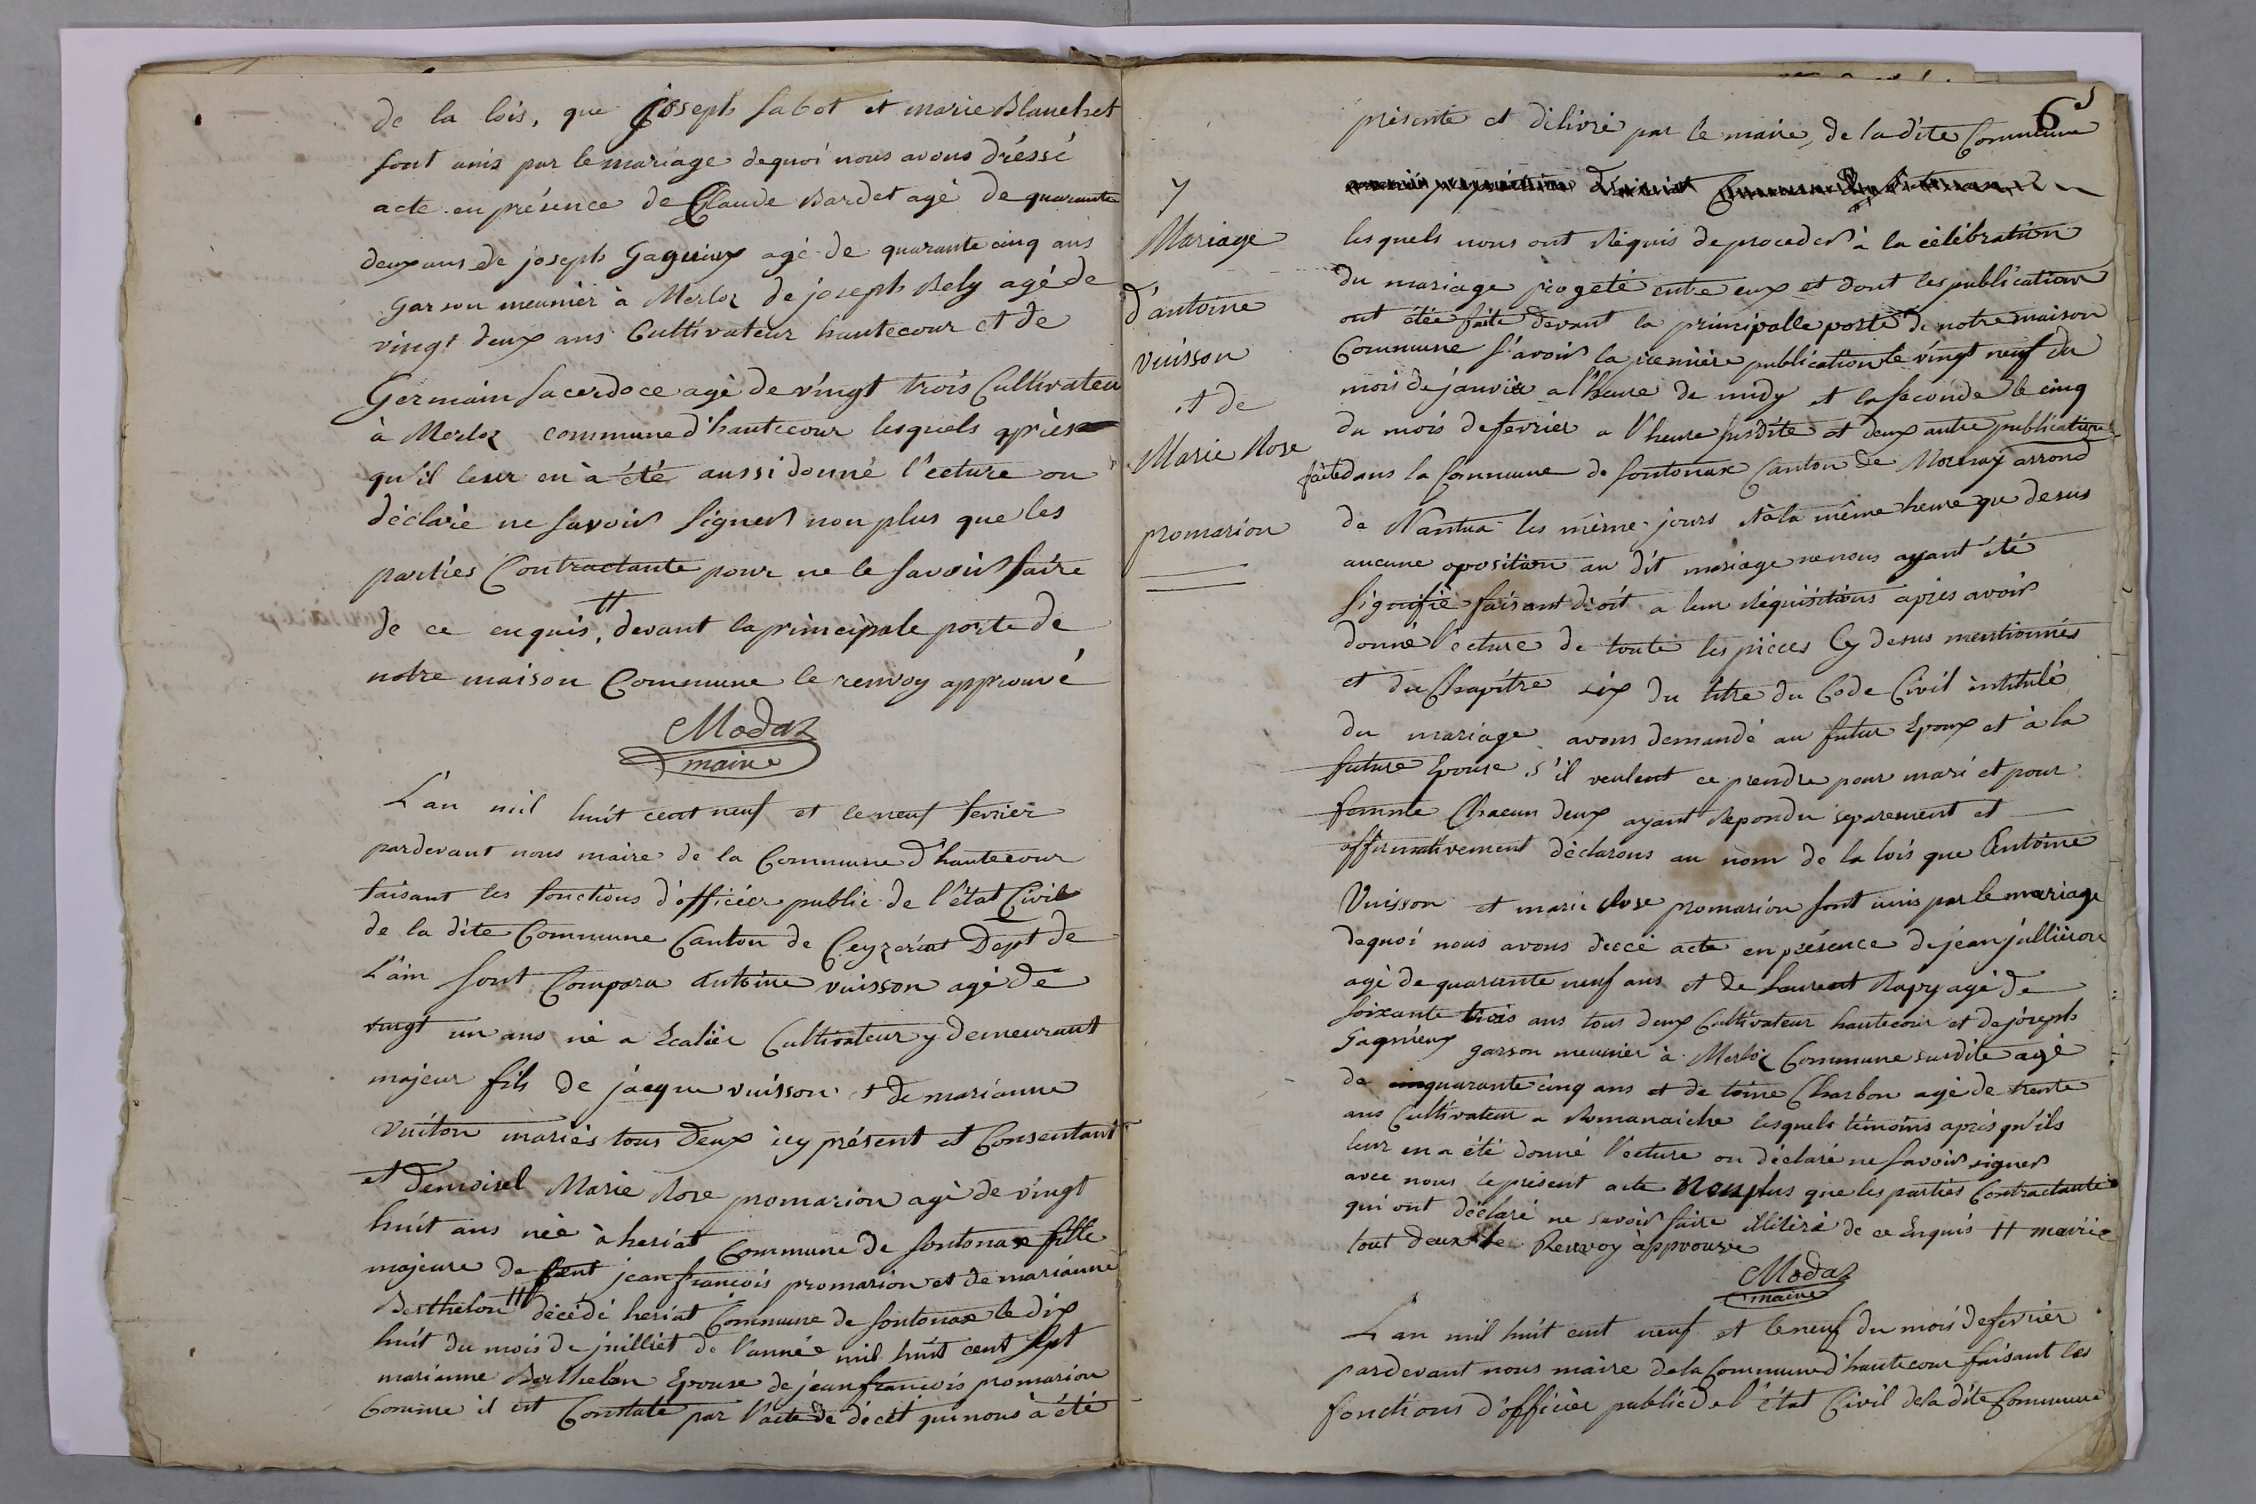 de la lois, que joseph Sabot et marie Blanchet
sont unis par le mariage dequoi nous avons dréssé
acte en présence de Claude Bardet agé de quarante
deux ans de joseph Gagnieux agé de quarante cinq ans
garson meunier à Merloz de joseph Rely agé de
vingt deux ans Cultivateur hautecour et de
Germain Sacerdoce agé de vingt trois Cultivateu
à Merloz commune d'hautecour lesquels après
qu'il leur en à été aussi donné l'ecture on
déclaré ne savoir signer non plus que les
parties Contractante pour ne le savoir faire
de ce enquis, devant la principale porte de
notre maison Commune le renvoy approuvé
Modaz
maire
L'an mil huit cent neuf et le neuf fevrier
pardevant nous maire de la Commune d'hautecour
faisant les fonctions d'officier public de l'état Civil
de la dite Commune Canton de Ceyzeriat Dept de
L'ain sont Comparu Antoine vuisson agé de
vingt un ans né a Ecalier Cultivateur y demeurant
majeur fils de jacque vuisson et de marianne
Vuiton mariés tous deux icy présent et Consentant
et demoisel Marie Rose promarion agé de vingt
huit ans née à heriat Commune de Sontonax fille
majeure de jean françois promarion et de marianne
Berthelon décédé heriat Commune de Sontonax le dix
huit du mois de juilliet de l'année mil huit cent Sept
marianne Berthelon Epouse de jean françois promarion
Comme il est Constaté par l'acte de décét qui nous à été
6
présenté et délivré par le maire de la dite Commune
7
Mariage
d'antoine
vuisson
et de
Marie Rose
promarion
lesquels nous ont Réquis de proceder à la célébration
du mariage progeté entre eux et dont les publication
ont étée faite devant la principalle porte de notre maison
Commune s'avoir la premiere publication le vingt neuf du
mois de janvier a l'heure de midy et la seconde le cinq
du mois de fevrier a l'heure susdite et deux autre publication
faite dans la Commune de Sontonax Canton de Mornay arrond
de Nantua les même jours et à la même heure que desus
aucune oposition au dit mariage ne nous ayant été
signifié faisant droit a leur Réquisitions après avoir
donné l'ecture de toute les pièces Cy desus mentionnés
et du Chapitre six du titre du Code Civil intitulé
du mariage avons demandé au futur Epoux et à la
future Epouse s'il veulent ce prendre pour mari et pour
femme Chacun deux ayant Repondu séparement et
affirmativement déclarons au nom de la lois que Antoine
Vuisson et marie Rose promarion sont unis par le mariage
dequoi nous avons drécé acte en présence de jean jullieron
agé de quarante neuf ans et de Laurent Rapy agé de
soixante trois ans tous deux Cultivateur hautecour et de joseph
Gagnieux garson meunier à Merloz Commune susdite agé
de quarante cinq ans et de toine Charbon agé de trente
ans Cultivateur a Romanaiche lesquels témoins après qu'ils
leur en a été donné l'ecture on déclaré ne savoir signer
avec nous le présent acte Non plus que les parties Contractante
qui ont déclaré ne savoir faire illitéré de ce Enquis # mariés
tout deux le Renvoy approuve
Modaz
maire
L'an mil huit cent neuf et le neuf du mois de fevrier
pardevant nous maire de la Commune d'hautecour faisant les
fonctions d'officier public de l'état Civil de la dite Commune